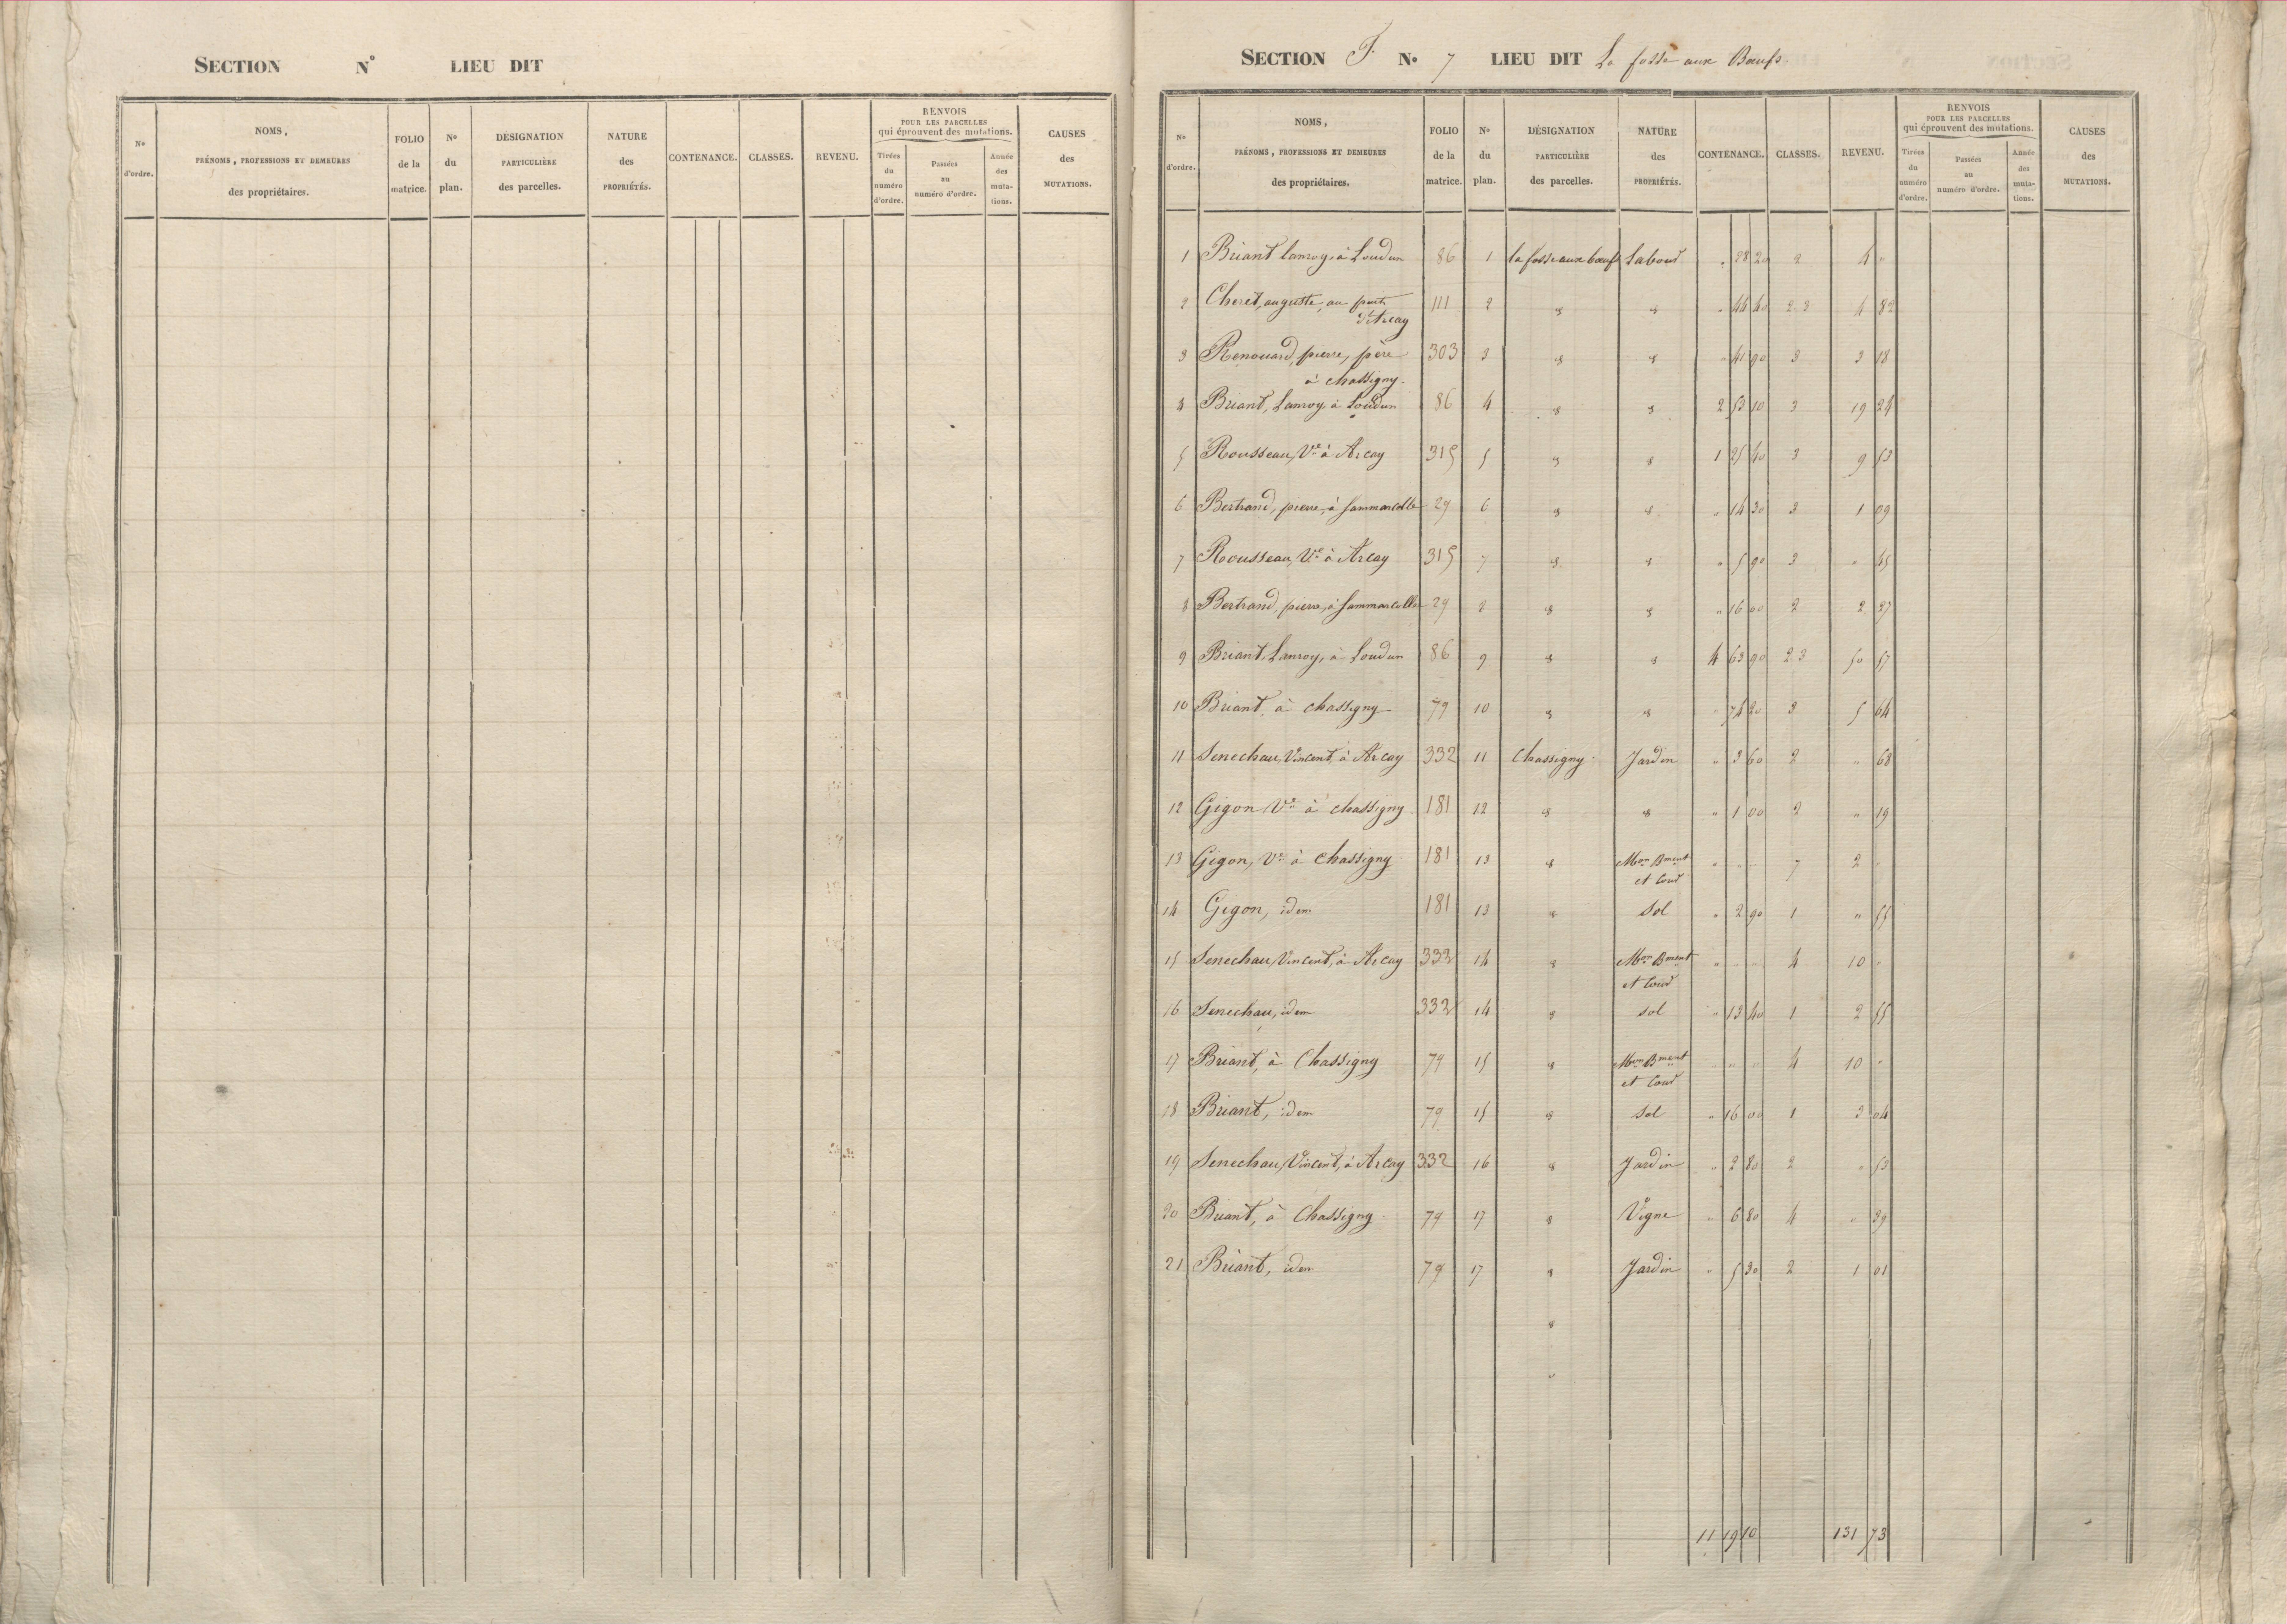 SECTION N° LIEU DIT
N° d'ordre. | NOMS, PRÉNOMS, PROFESSIONS ET DEMEURES des propriétaires. | FOLIO de la matrice. | N° du plan. | DÉSIGNATION PARTICULIÈRE des parcelles. | NATURE des PROPRIÉTÉS. | CONTENANCE. | CLASSES. | REVENU. | RENVOIS POUR LES PARCELLES qui éprouvent des mutations. Tirées du numéro d'ordre. | Passées au numéro d'ordre. | Année des mutations. | CAUSES des MUTATIONS.
SECTION F. N° 7 LIEU DIT La fosse aux Bœufs
N° d'ordre. | NOMS, PRÉNOMS, PROFESSIONS ET DEMEURES des propriétaires. | FOLIO de la matrice. | N° du plan. | DÉSIGNATION PARTICULIÈRE des parcelles. | NATURE des PROPRIÉTÉS. | CONTENANCE. | CLASSES. | REVENU. | RENVOIS POUR LES PARCELLES qui éprouvent des mutations. Tirées du numéro d'ordre. | Passées au numéro d'ordre. | Année des mutations. | CAUSES des MUTATIONS.
1 Briant Lanroy, à Loudun 86 1 la fosse aux bœufs Labour " 28 20 2 4 "
2 Cheret, auguste, au pont d'Arcay 111 2 " " " 44 40 2.3 4 82
3 Renouard, pierre, père à chassigny 303 3 " " " 41 90 3 3 18
4 Briant, Lanroy, à Loudun 86 4 " " 2 53 10 3 19 24
5 Rousseau, Ve à Arcay 315 5 " " 1 25 40 3 9 53
6 Bertrand, pierre, à Sammarcolle 29 6 " " " 14 30 3 1 09
7 Rousseau, Ve à Arcay 315 7 " " " 5 90 3 " 45
8 Bertrand, pierre, à Sammarcolle 29 8 " " " 16 00 2 2 27
9 Briant, Lanroy, à Loudun 86 9 " " 4 63 90 2.3 50 57
10 Briant, à chassigny 79 10 " " " 74 20 3 5 64
11 Senechau, Vincent, à Arcay 332 11 Chassigny Jardin " 3 60 2 " 68
12 Gigon Ve à chassigny 181 12 " " " 1 00 2 " 19
13 Gigon, Ve à chassigny 181 13 " Mon Bment et Cour " " " 7 2 "
14 Gigon, idem 181 13 " Sol " 2 90 1 " 55
15 Senechau, Vincent, à Arcay 332 14 " Mon Bment et Cour " " " 4 10 "
16 Senechau, idem 332 14 " sol " 13 40 1 2 55
17 Briant, à Chassigny 79 15 " Mon Bment et Cour " " " 4 10 "
18 Briant, idem 79 15 " Sol " 16 00 1 3 04
19 Senechau, Vincent, à Arcay 332 16 " Jardin " 2 80 2 " 53
20 Briant, à Chassigny 79 17 " Vigne " 6 80 4 " 39
21 Briant, idem 79 17 " Jardin " 5 30 2 1 01
"
"
11 19 10 131 73